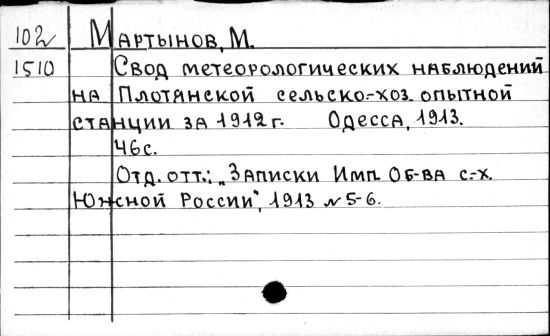 102 Мартынов, М.
1510 Свод метеорологических наблюдений
на Плотянской сельско-хоз. опытной
станции за 1912 г. Одесса, 1913.
46с.
Отд. отт.: „Записки Имп. Об-ва с.-х.
Южной России", 1913 № 5-6.